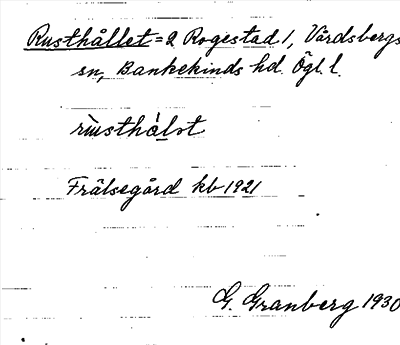 Rusthållet = 2 Rogestad 1, Vårdsbergs
sn, Bankekinds hd. Ögl. l.
rùsthálət
Frälsegård kb 1921
G. Granberg 1930